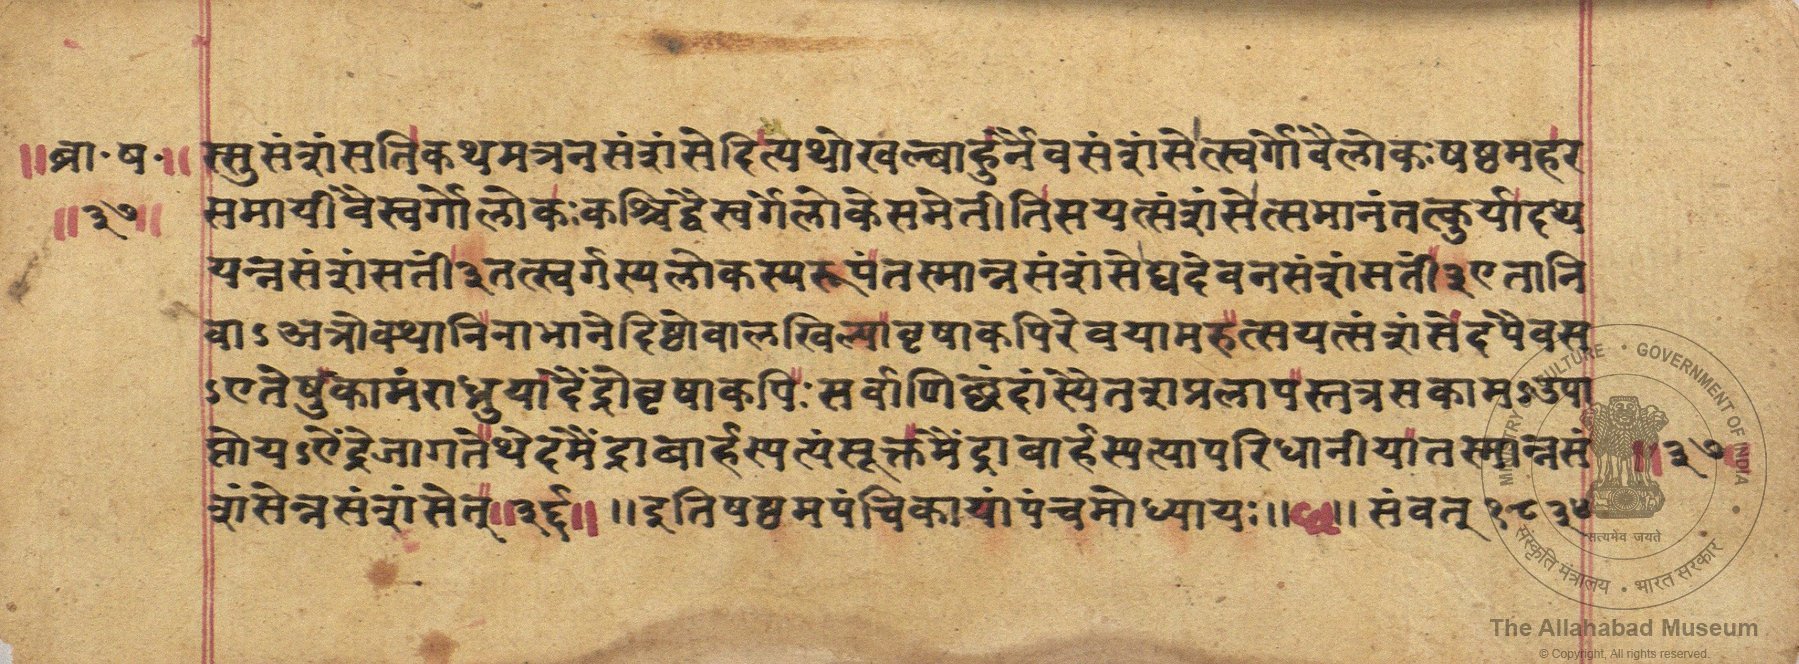 ॥ब्रा॰ष॰॥ स्सुसंशंसतिकथमत्रनसंशंसेदित्यथोखल्वाहुर्नैवसंशंसेत्स्वर्गोवैलोकःषष्ठमहर
॥३७॥ समायीवैस्वर्गोलोकःकश्चिद्वैस्वर्गेलोकेसमेतीतिसयत्संशंसेत्समानंतत्कुर्यादथ
यन्नसंशंसतीं३तत्स्वर्गस्यलोकस्यरूपंतस्मान्नसंशंसेद्यदेवनसंशंसतीं३एतानि
वाऽअत्रोक्थानिनाभानेदिष्ठोवालखिल्यावृषाकपिरेवयामरुत्सयत्संशंसेदपैवस
ऽएतेषुकामंराध्नुयादैंद्रोवृषाकपिःसर्वाणिछंदांस्यैतशप्रलापस्तत्रसकामऽउपा
प्तोयऽऐंद्रेजागतेथेदमैंद्राबार्हस्पत्यंसूक्तमैंद्राबार्हस्पत्यापरिधानीयातस्मान्नसं ॥३७॥
शंसेन्नसंशंसेत्॥३६॥ ॥इतिषष्ठमपंचिकायांपंचमोध्यायः॥छ॥ संवत् १८३५
MINISTRY OF CULTURE • GOVERNMENT OF INDIA
सत्यमेव जयते
संस्कृति मंत्रालय • भारत सरकार
The Allahabad Museum
© Copyright, All rights reserved.